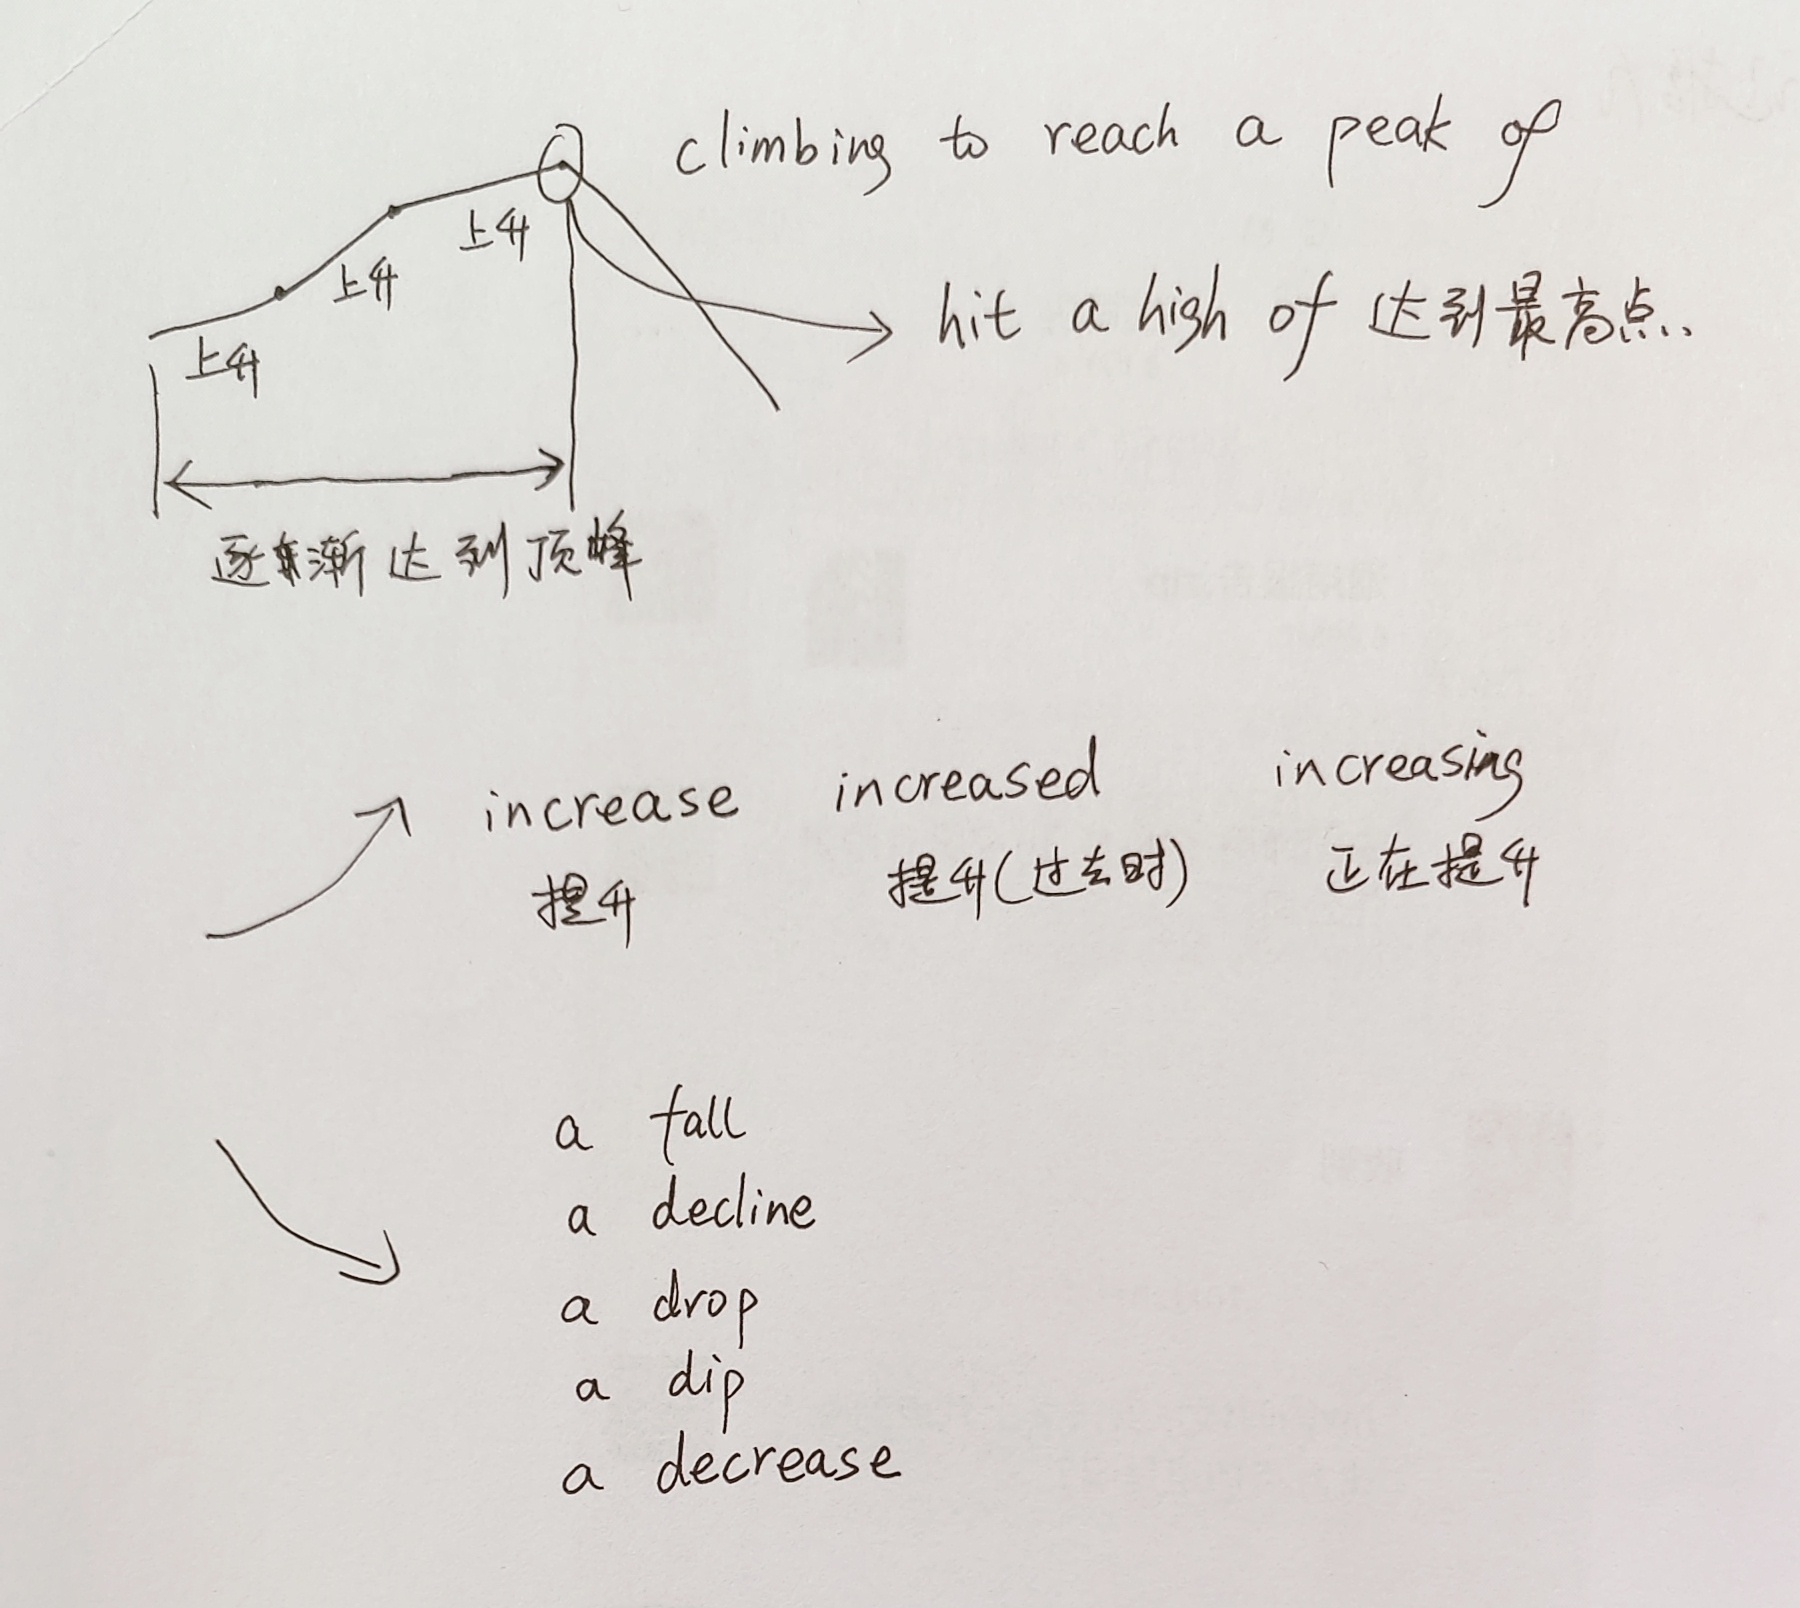 climbing to reach a peak of
上升
上升
上升
hit a high of 达到最高点..
逐渐达到顶峰
increase increased increasing
提升 提升(过去时) 正在提升
a fall
a decline
a drop
a dip
a decrease